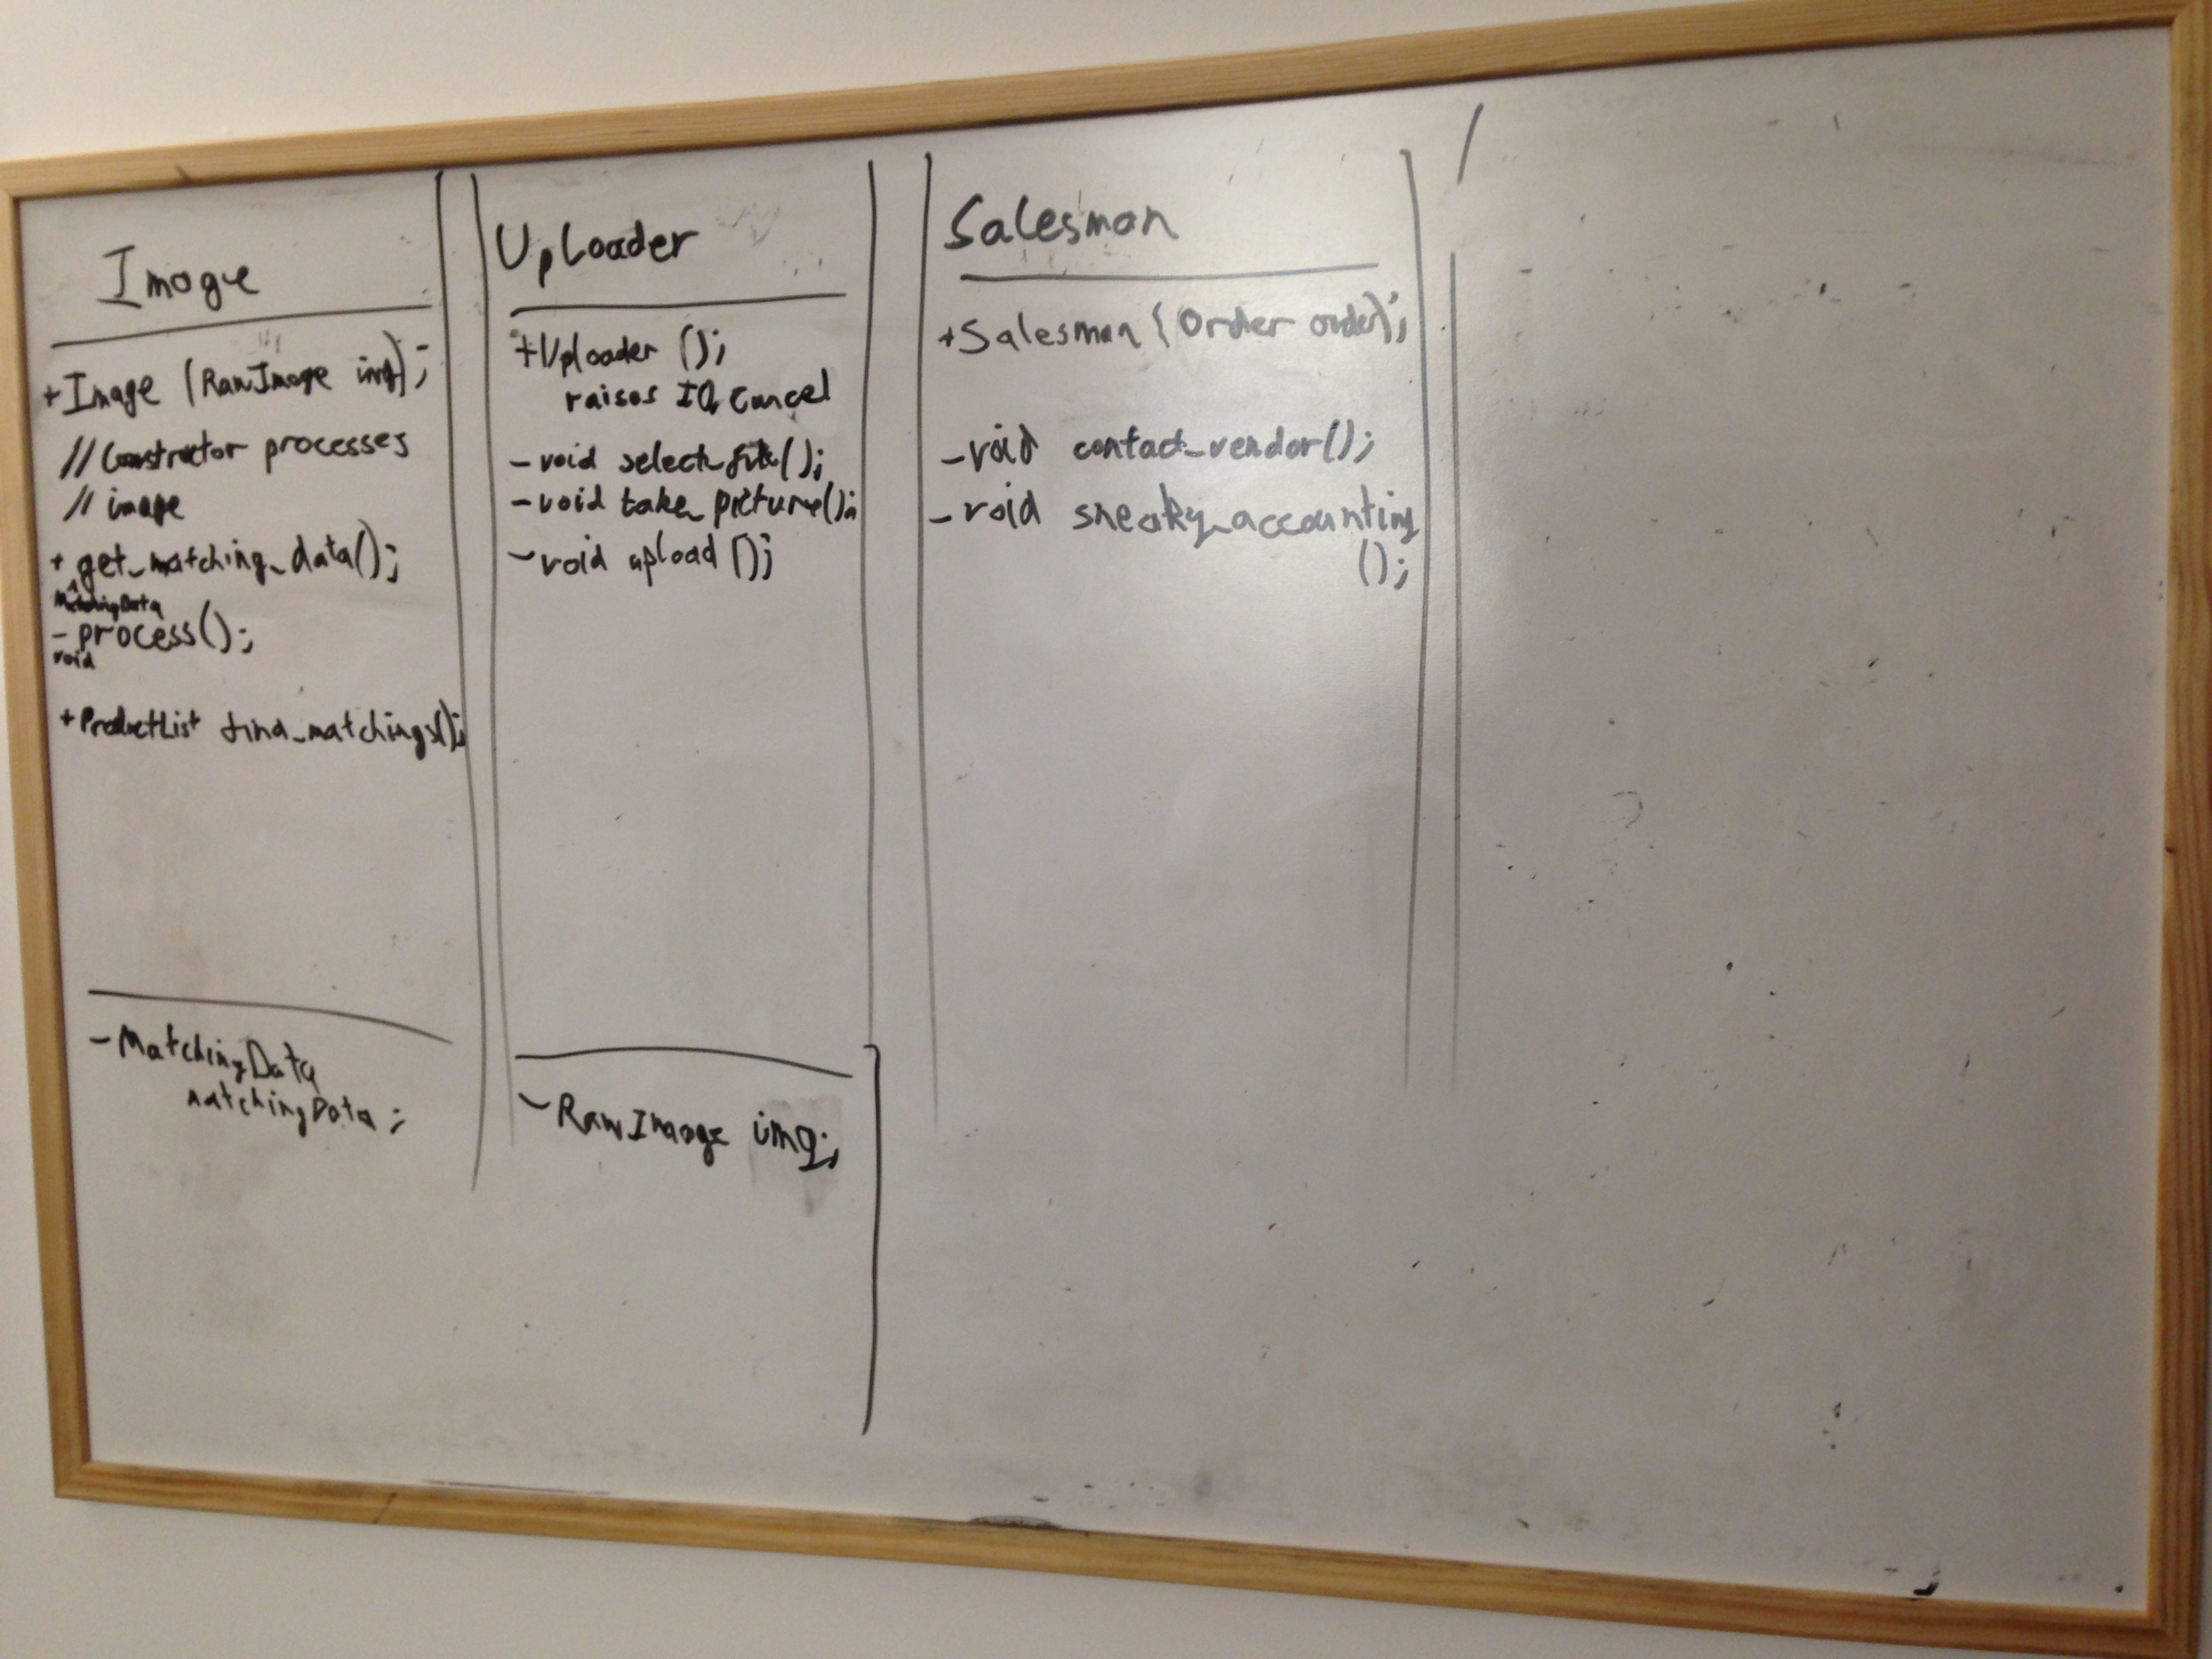 Image
+Image (RawImage img);
// Constructor processes
// image
+ get_matching_data();
MatchingData
- process();
void
+ProductList find_matchings();
- MatchingData
matchingData;
Uploader
+Uploader ();
raises IO, Cancel
- void select_file();
- void take_picture();
- void upload();
- RawImage img;
Salesman
+Salesman (Order order);
- void contact_vendor();
- void sneaky_accounting
();